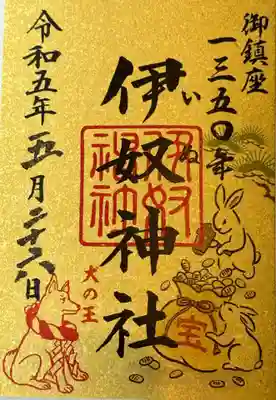 御鎮座
一三五〇年
伊奴神社
いぬ
伊奴神社
令和五年五月二十六日
犬の王
宝